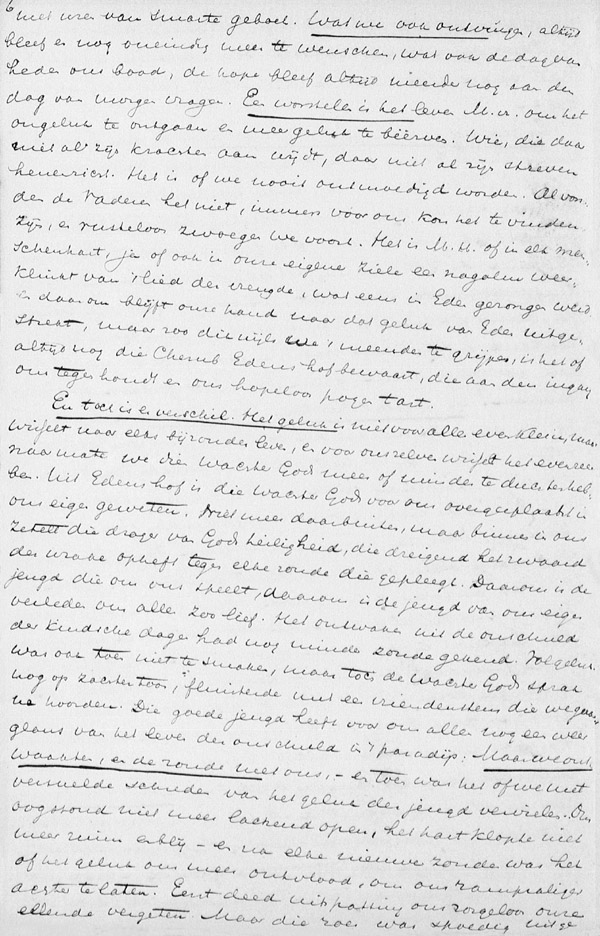 6
met uren van smarte geboet. Wat we ook ontvingen, altijd
bleef er nog oneindig meer te wenschen, wat ook de dag van
heden ons bood, de hope bleef altijd meerder nog aan den
dag van morgen vragen. Een worstelen is het leven M. vr. om het
ongeluk te ontgaan en meer geluk te beërven. Wie, die daar
niet al zijn krachten aan wijdt, daar niet al zijn streven
henenricht. Het is of we nooit ontmoedigd worden. Al von-
den de Vaderen het niet, immers voor ons kon het te vinden
zijn, en rusteloos zwoegen we voort. Het is M. H. of in elk men-
schenhart, ja of ook in onze eigene ziele een nagalm weer-
klinkt van 't lied der vreugde, wat eens in Eden gezongen werd
en daarom blijft onze hand naar dat geluk van Eden uitge-
strekt, maar zoo dikwijls we 't meenden te grijpen, is het of
altijd nog die Cherub Edens hof bewaart, die aan den ingang
ons tegenhoudt en ons hopeloos pogen tart.
En toch is er verschil. Het geluk is niet voor alle even klein, maar
wisselt naar elks bijzonder leven, en voor onszelve wisselt het evenzeer
naarmate we dien wachter Gods meer of minder te duchten heb-
ben. Uit Edens hof is die wachter Gods voor ons overgeplaatst in
ons eigen geweten. Niet meer daarbuiten, maar binnen in ons
zetelt die drager van Gods heiligheid, die dreigend het zwaard
der wrake opheft tegen elke zonde die gepleegd. Daarom is de
jeugd die om ons speelt, daarom is de jeugd van ons eigen
verleden ons alle zoo lief. Het ontwaken uit de onschuld
der kindsche dagen had nog minder zonde gekend. Vol geluk
was ook toen niet te smaken, maar toch de wachter Gods sprak
nog op zachter toon, fluisterde met een vriendenstem die we gaarne
hoorden. Die goede jeugd heeft voor ons allen nog een weer
glans van het leven der onschuld in 't paradijs: Maar we ont-
waakten, en de zonde met ons, - en toen was het of we met
versnelde schreden van het geluk der jeugd vervielen. Ons
oog stond niet meer lachend open, het hart klopte niet
meer ruim en blij - en na elke nieuwe zonde was het
of het geluk ons meer ontvlood, om ons rampzaliger
achter te laten. Eerst deed uitspatting ons zorgeloos onze
ellende vergeten. Maar die roes was spoedig uitge